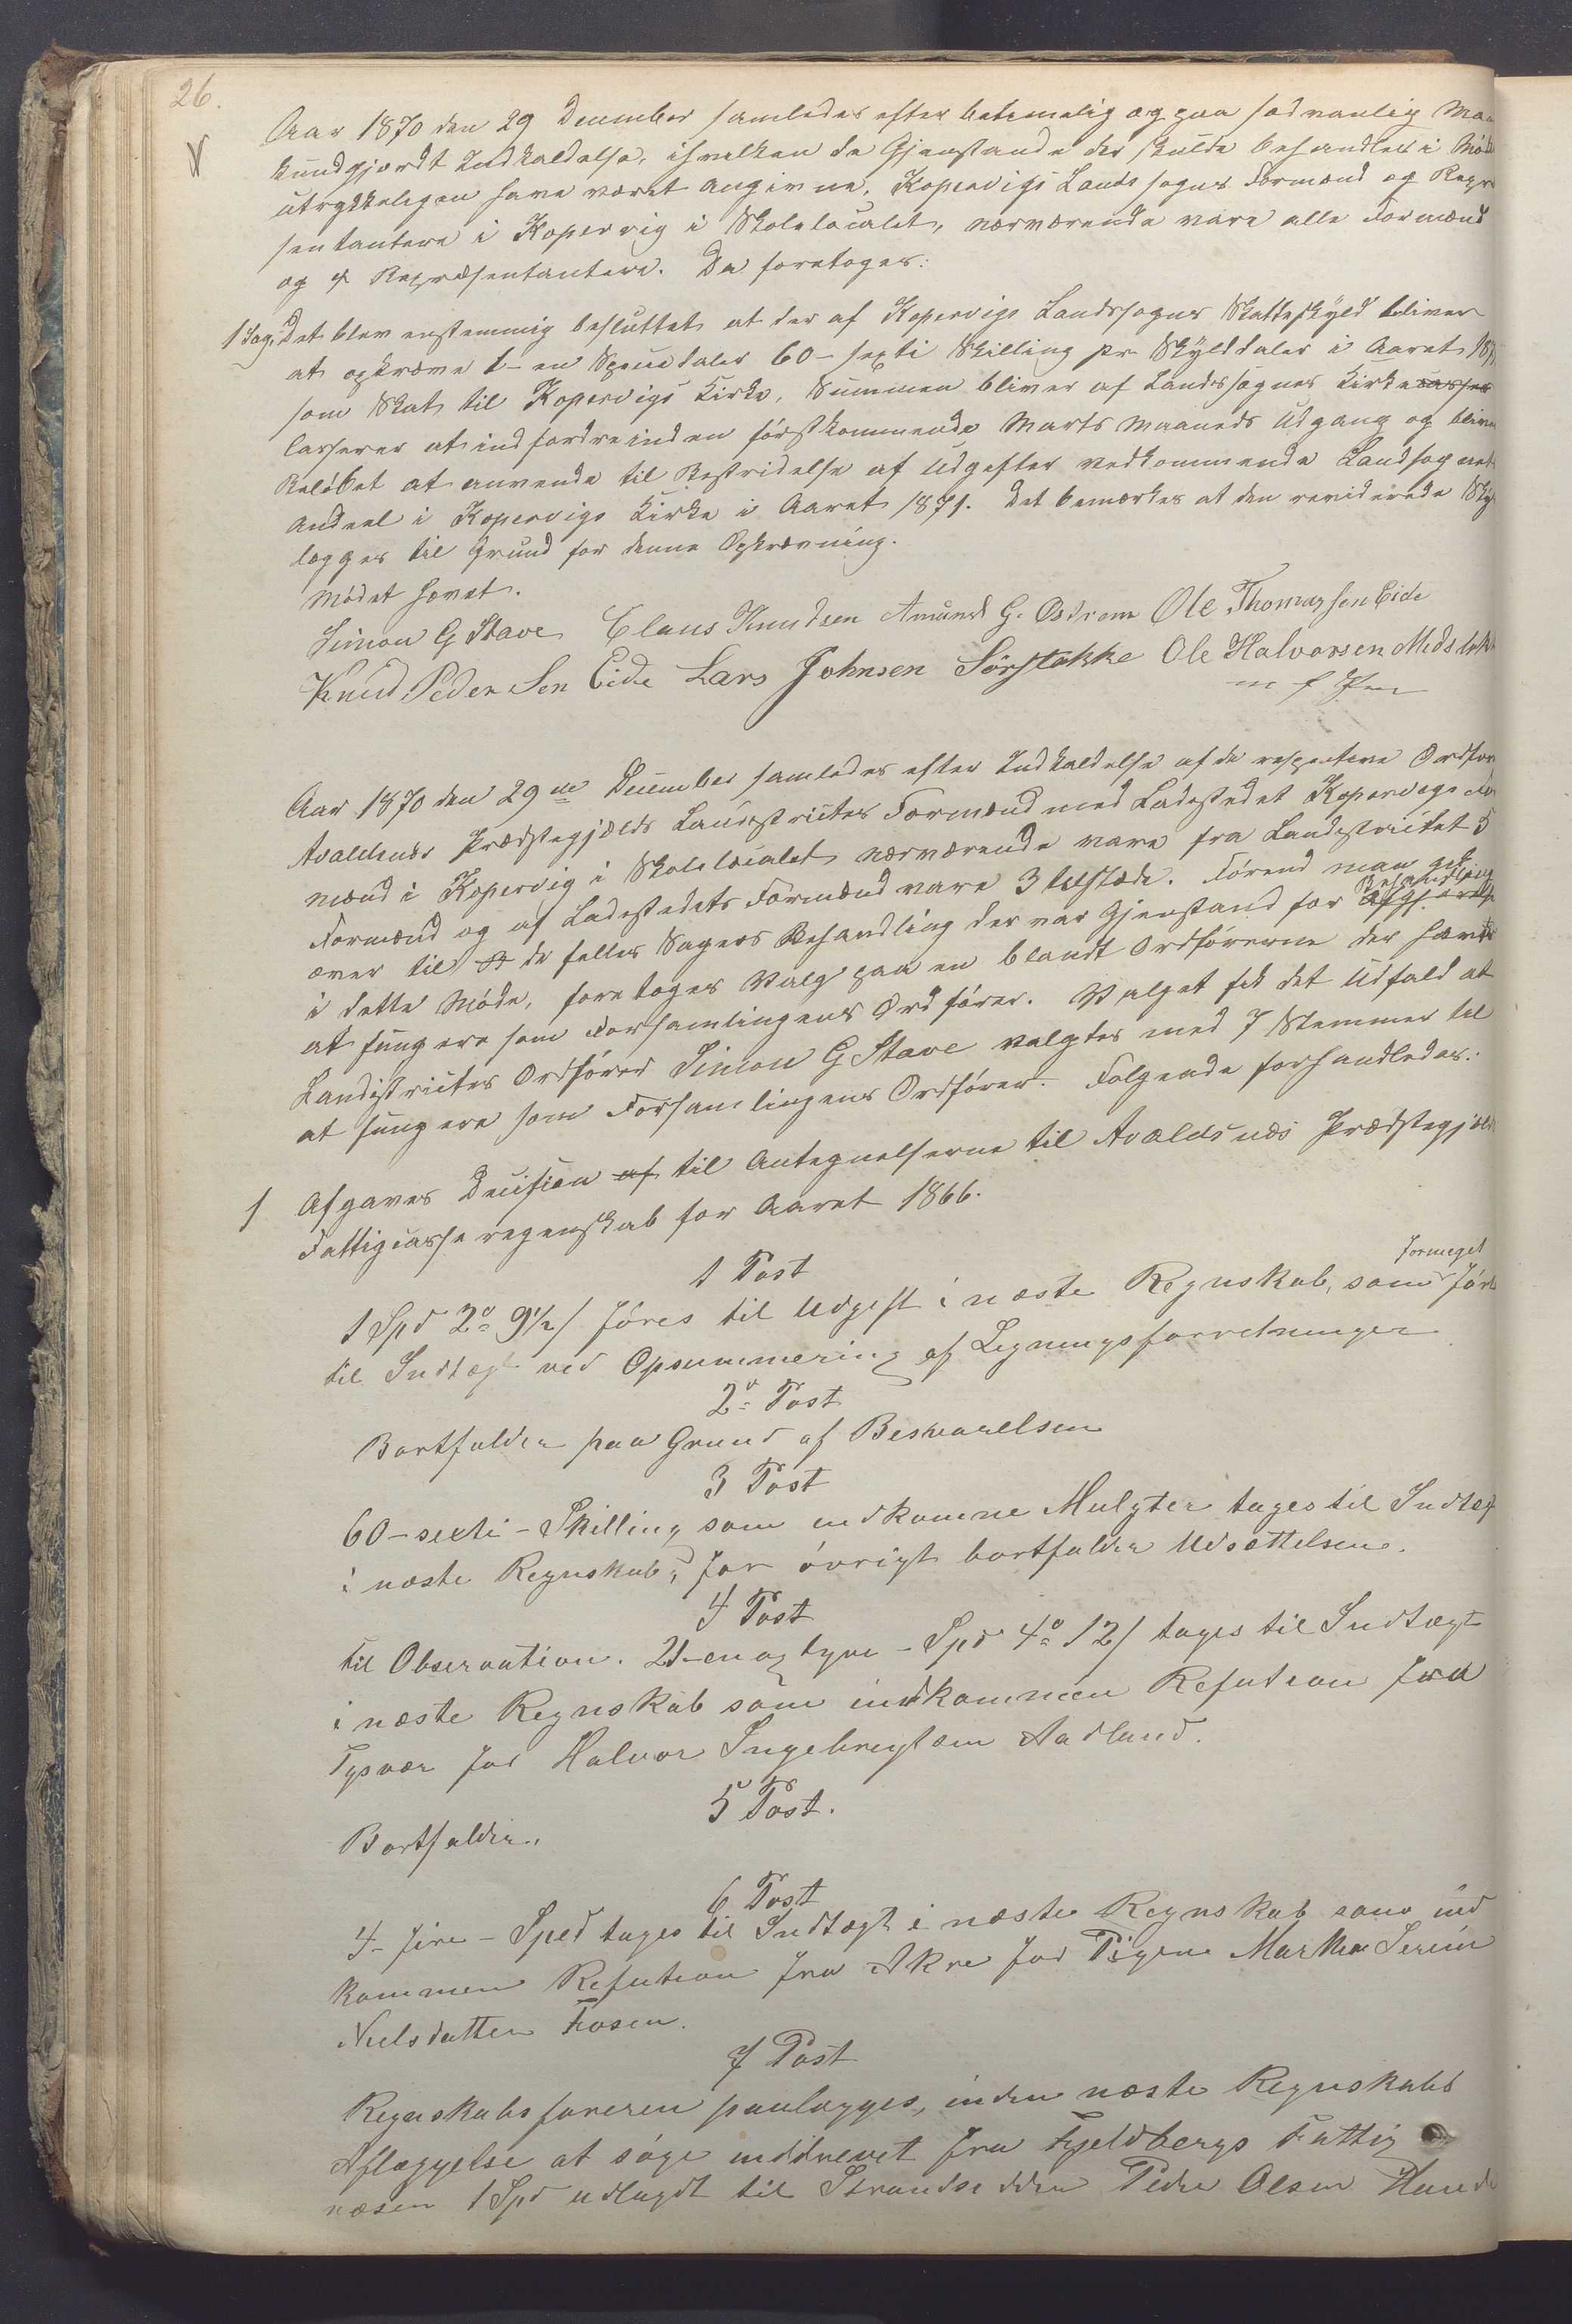 26.
Aar 1870 den 29 December samledes efter betimelig og paa sædvanlig Maa
kundgjordt Indkaldelse, ihvilken de Gjenstande der skulde behandles i Möde
udtrykkeligen have været angivne, Kopervigs Landssogns Formænd og Repræ
sentantere i Kopervig i Skolelocalet, nærværende vare alle Formænd
og 4 Repræsentantere. Da foretoges:
1 Sag. Det blev enstemmig besluttet at der af Kopervigs Landssogns Skatteskyld bliver
at opkræve 1 - en Speciedaler 60 - sexti Skilling pr Skylddaler i Aaret 1871
som Skat til Kopervigs Kirke, Summen bliver af Landssognes Kirke
casserer at indfordre inden förstkommende Marts Maaneds Udgang og bliver
Belöbet at anvende til Bestridelse af Udgifter vedkommende Landsognets
Andeel i Kopervigs Kirke i Aaret 1871. Det bemærkes at den reviderede Sky
lægges til Grund for denne Opkrævning.
Mödet hævet.
Simon G Stave Claus Knudsen Amund G. Østrem Ole Thomassen Eide
Knud Pedersen Eide Lars Johnsen Sörstokke Ole Halvorsen Medslok
m f Pen
Aar 1870 den 29de December samledes efter Indkaldelse af de respective Ordför
Avaldsnæs Præstegjælds Landistrictes Formænd med Ladestedet Kopervigs For
mænd i Kopervig i Skolelocalet nærværende vare fra Landistrictet 5
Formænd og af Ladestedets Formænd vare 3 tilstæde. Förend man gik
over til de fælles Sagers Behandling der var Gjenstand for Afgjörelse Behandling
i dette Möde, foretoges Valg paa en blandt Ordförerne der havde
at fungere som Forsamlingens Ordförer. Valget fik det Udfald at
Landistrictes Ordförer Simon G Stave valgtes med 7 Stemmer til
at fungere som Forsamlingens Ordförer. Følgende forhandledes:
1 Afgaves Decision af til Antegnelserne til Avaldsnæs Præstegjæld
Fattigcasseregnskab for Aaret 1866.
1 Post
formeget
1 Spd 2o 9½ / föres til Udgift i næste Regnskab, som fört
til Indtægt ved Opsummering af Ligningsforretningen
2o Post
Bortfalder paa Grund af Besvarelsen
3 Post
60 - sexti - Skilling som indkomne Mulgter tages til Indtægt
i næste Regnskab, for övrigt bortfalder Udsættelsen.
4 Post
til Observation. 21 - en og tyve - Spd 4o 12 / tages til Indtægt
i næste Regnskab som indkommen Refusion fra
Tysvær for Halvor Ingebregtsen Aadland.
5 Post.
Bortfalder.
6 Post
4 - fire - Sped tages til Indtægt i næste Regnskab som ind
kommen Refusion fra Akre for Pigen Martha Serine
Nielsdatter Fosen.
7 Post
Regnskabsföreren paalægges, inden næste Regnskabs
Aflæggelse at söge inddrevet fra Fjeldbergs Fattig
væsen 1 Spd udlagt til Strandsidder Peder Olsen Hunde